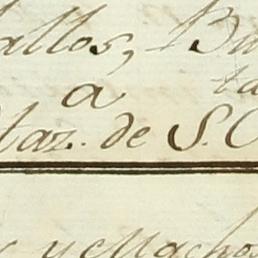 allos, Bu
a ta
taz. de S. C
y Machos